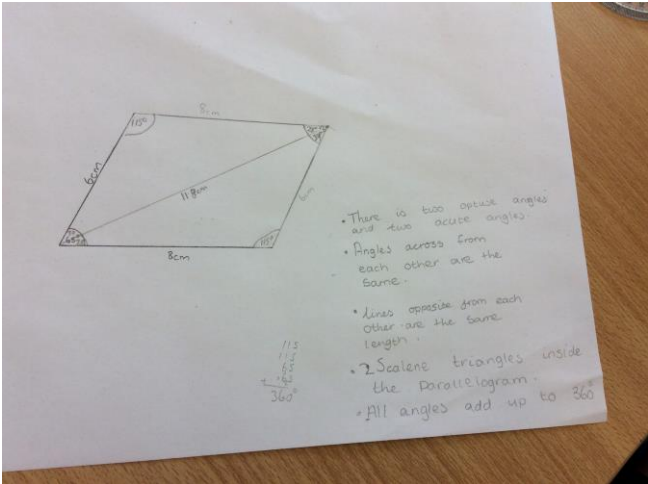 8cm
115°
6cm
11.8cm
6cm
65°
115°
8cm
• There is two optuse angles
and two acute angles.
• Angles across from
each other are the
same.
• lines opposise from each
other are the same
length.
• 2 Scalene triangles inside
the parallelogram.
• All angles add up to 360°
360°